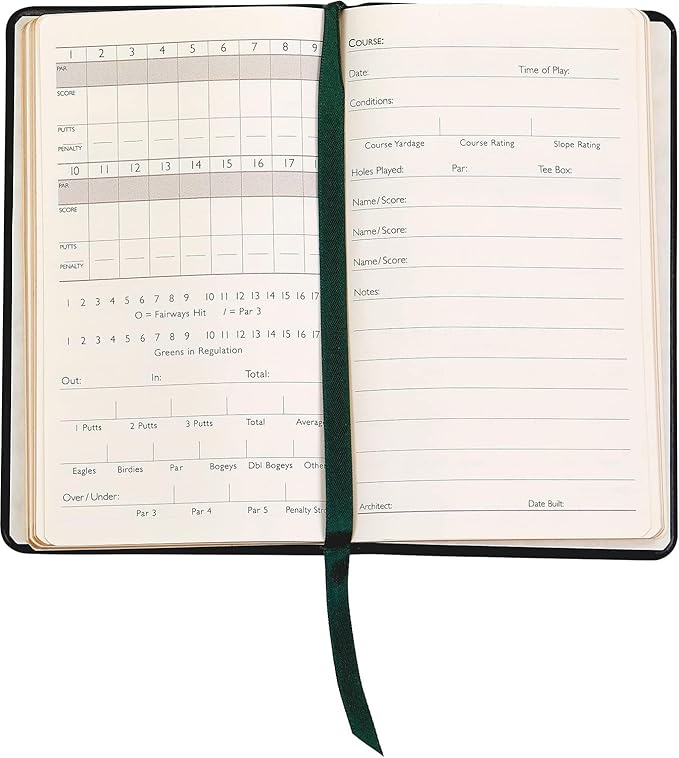 1 2 3 4 5 6 7 8 9
PAR
SCORE
PUTTS
PENALTY
10 11 12 13 14 15 16 17
PAR
SCORE
PUTTS
PENALTY
1 2 3 4 5 6 7 8 9 10 11 12 13 14 15 16 17
O = Fairways Hit / = Par 3
1 2 3 4 5 6 7 8 9 10 11 12 13 14 15 16 17
Greens in Regulation
Out: In: Total:
1 Putts 2 Putts 3 Putts Total Averag
Eagles Birdies Par Bogeys Dbl Bogeys Othe
Over / Under:
Par 3 Par 4 Par 5 Penalty Stro
COURSE:
Date: Time of Play:
Conditions:
Course Yardage Course Rating Slope Rating
Holes Played: Par: Tee Box:
Name / Score:
Name / Score:
Name / Score:
Notes:
Architect: Date Built: